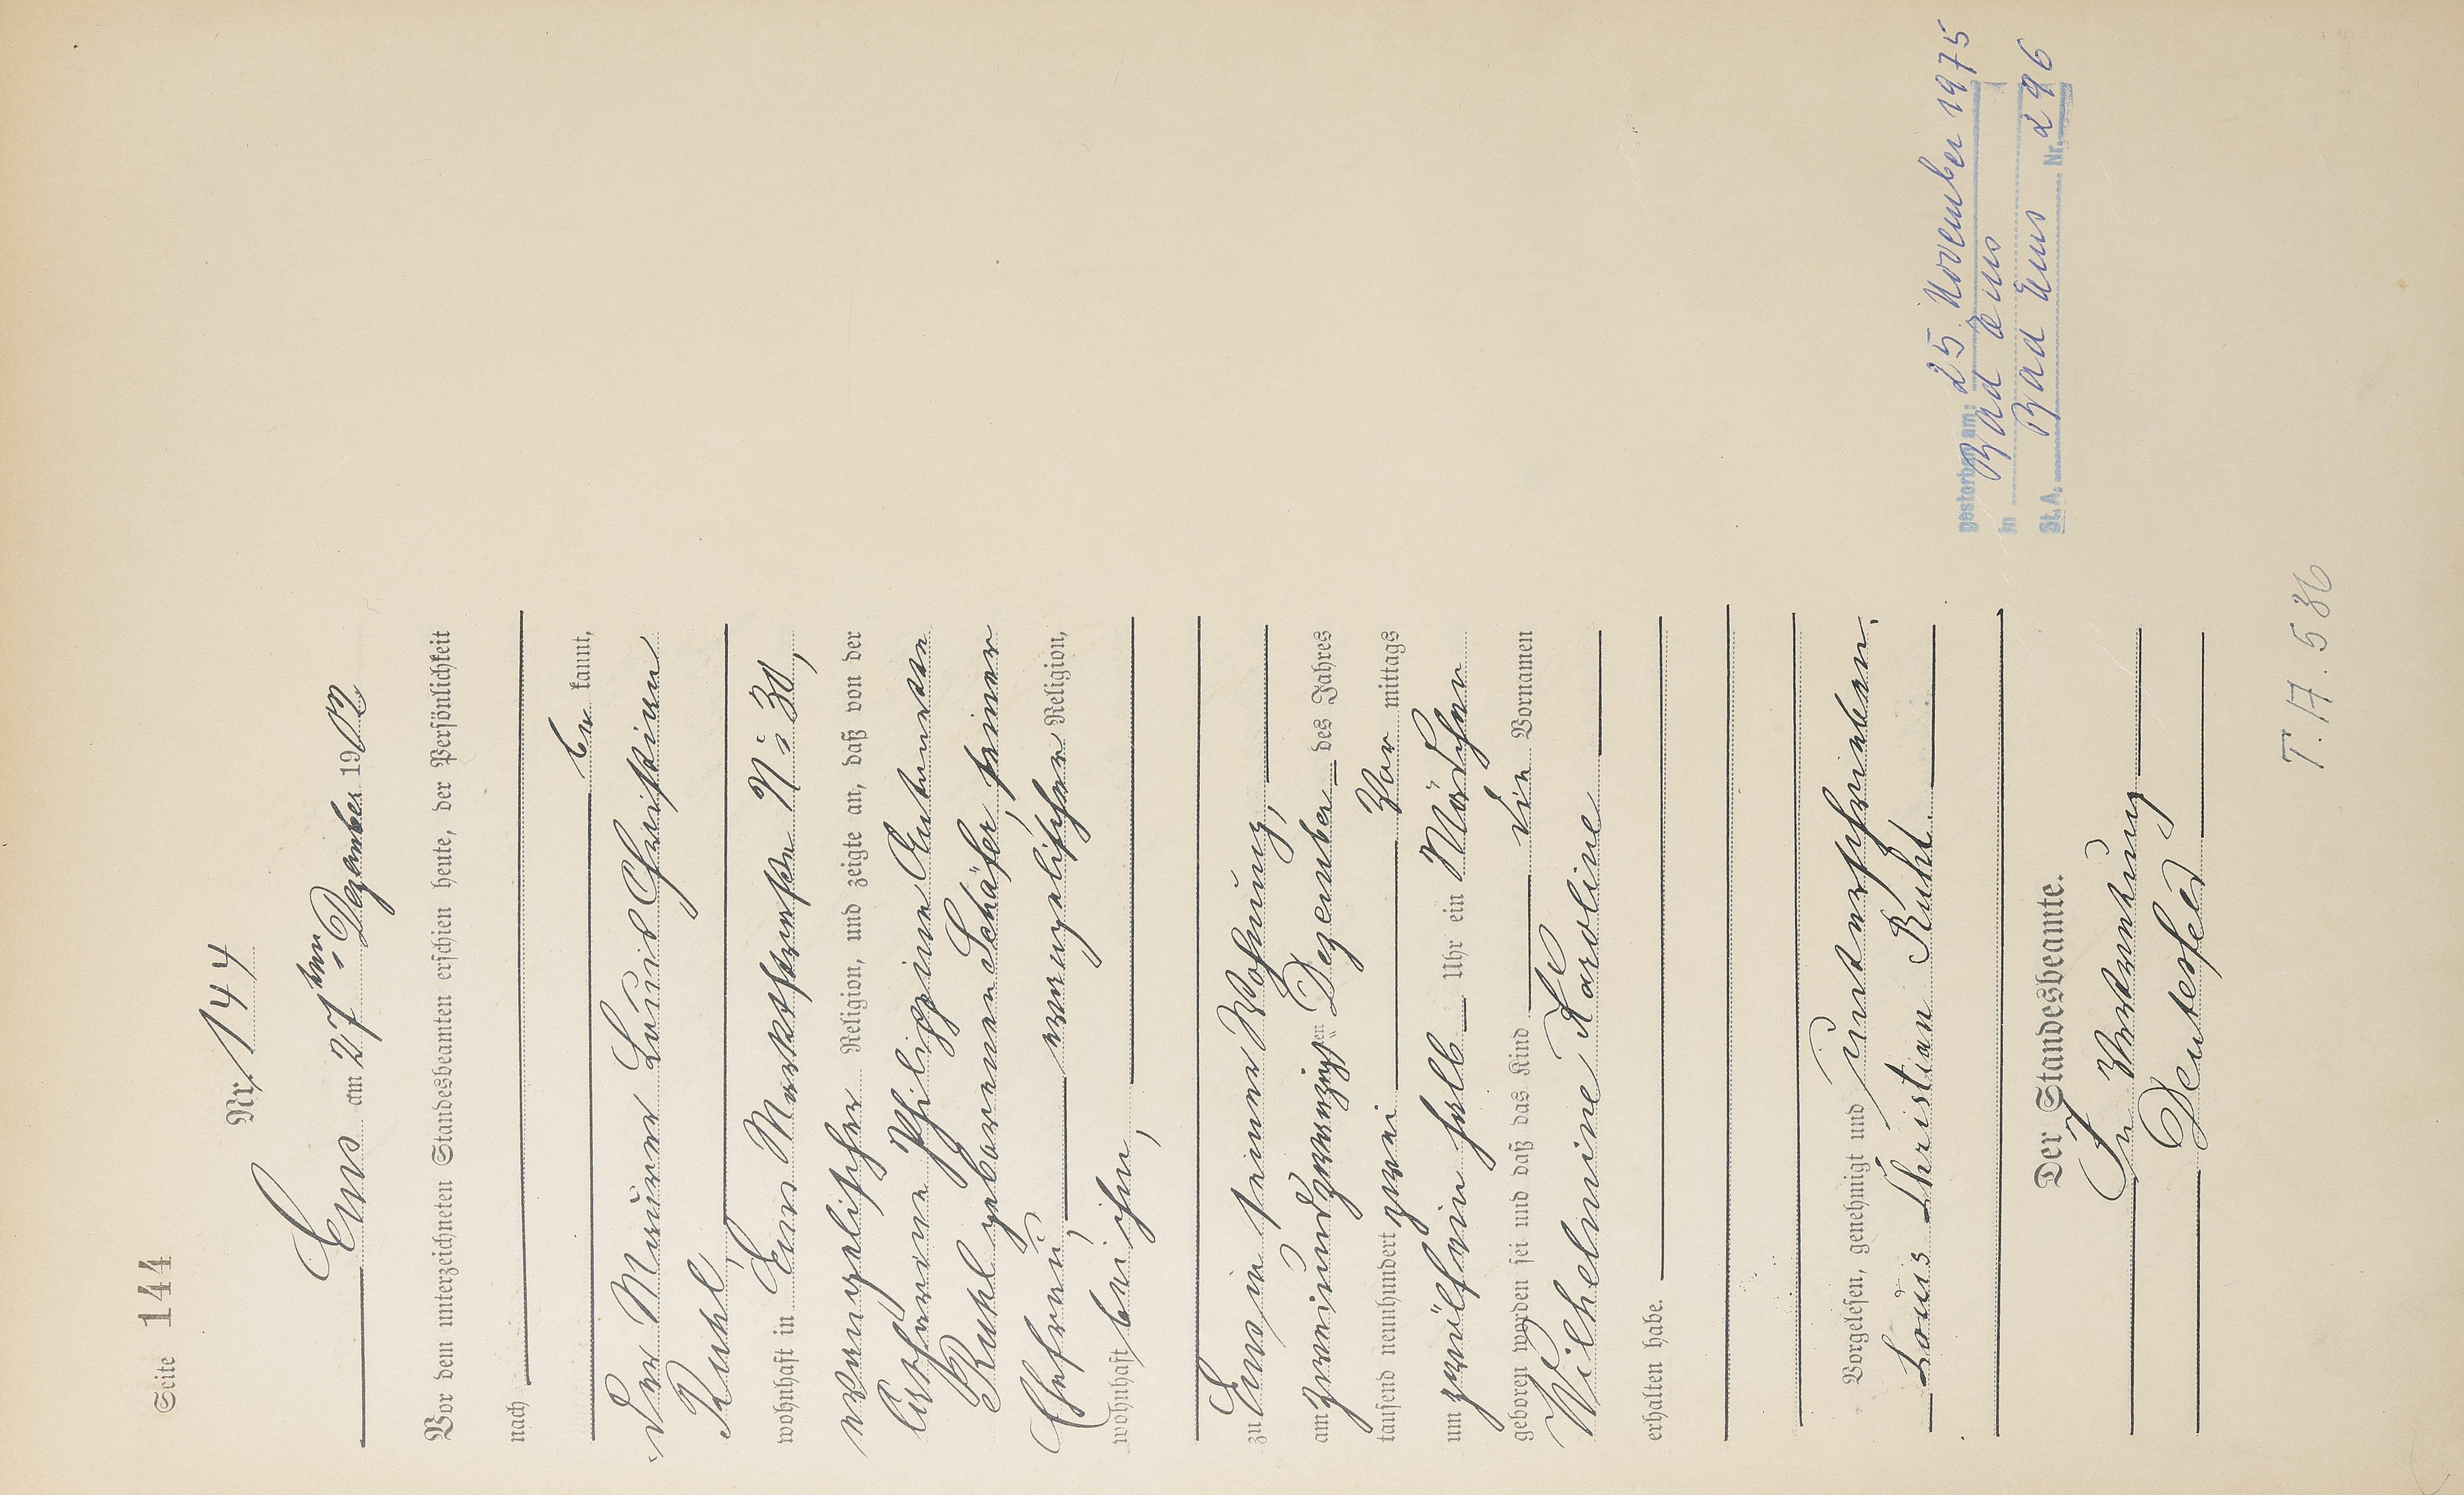 Seite 144
Nr. 144
Ems am 27ten Dezember 1902
Vor dem unterzeichneten Standesbeamten erschien heute, der Persönlichkeit
nach
be kannt,
der Maurer Louis Christian
Ruhl,
wohnhaft in Ems Marktstraße No 30,
evangelischer Religion, und zeigte an, daß von der
Philippine
Ruhl geborenen Schäfer, seiner
Ehefrau, evangelischer Religion,
wohnhaft bei ihm,
zu Ems in seiner Wohnung,
am zweiundzwanzigsten Dezember des Jahres
tausend neunhundert zwei Vor mittags
um zwölfeinhalb Uhr ein Mädchen
geboren worden sei und daß das Kind die Vornamen
Wilhelmine Karoline
erhalten habe.
Vorgelesen, genehmigt und unterschrieben.
Louis Christian Ruhl.
Der Standesbeamte.
In Vertretung
gestorben am: 25. November 1975
in Bad Ems
St. A. Bad Ems Nr. 296
T. 17. 536